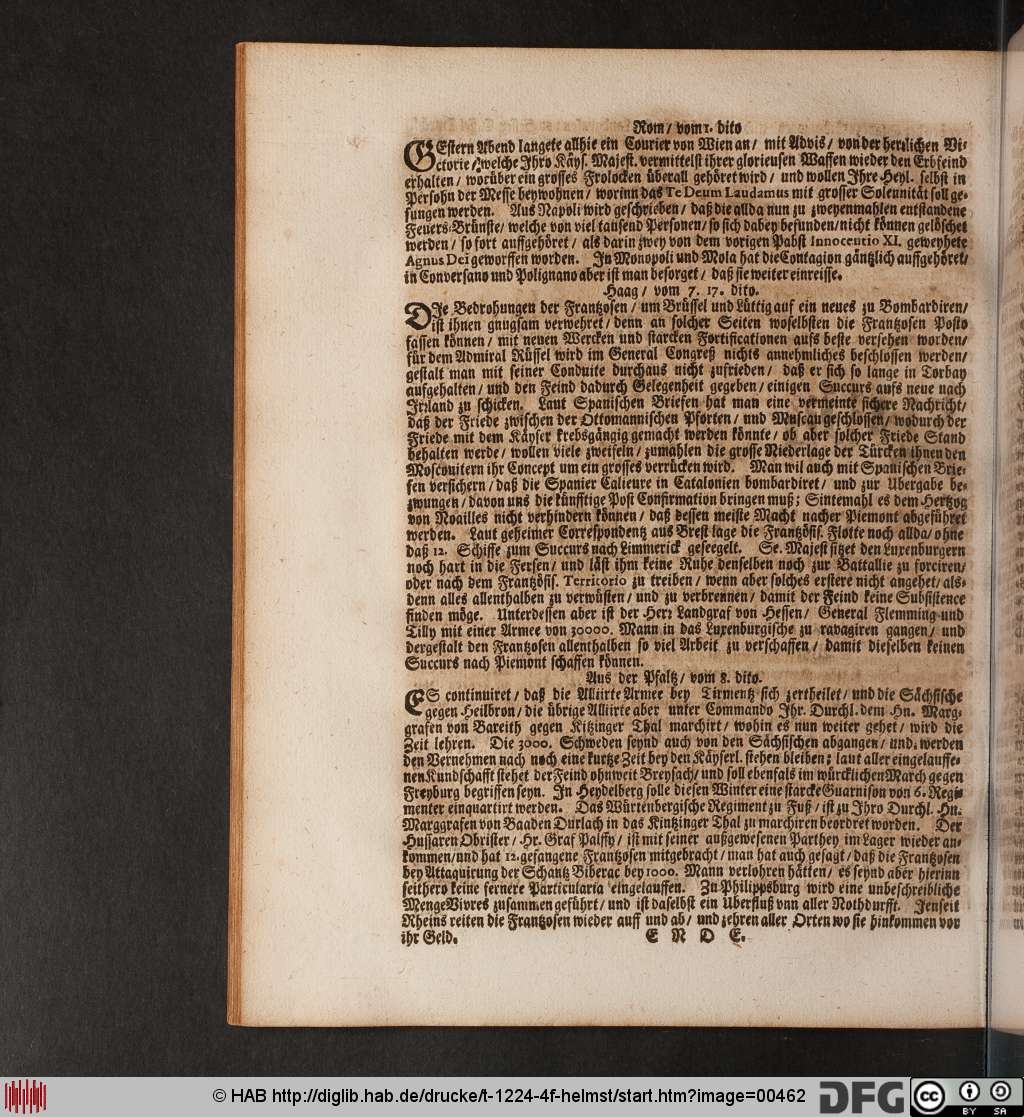 Rom / vom 1. dito
GEstern Abend langete allhie ein Courier von Wien an / mit Advis / von der herrlichen Vi-
ctorie / welche Ihro Käys. Majest. vermittelst ihrer glorieusen Waffen wieder den Erbfeind
erhalten / worüber ein grosses Frolocken überall gehöret wird / und wollen Ihre Heyl. selbst in
Persohn der Messe beywohnen / worinn das Te Deum Laudamus mit grosser Solennität soll ge-
sungen werden. Aus Napoli wird geschrieben / daß die allda nun zu zweyenmahlen entstandene
Feuers-Brünste / welche von viel tausend Personen / so sich dabey befunden / nicht können gelöschet
werden / so fort auffgehöret / als darin zwey von dem vorigen Pabst Innocentio XI. geweyhete
Agnus Dei geworffen worden. In Monopoli und Mola hat die Contagion gäntzlich auffgehöret /
in Conversano und Polignano aber ist man besorget / daß sie weiter einreisse.
Haag / vom 7. 17. dito.
DIe Bedrohungen der Frantzosen / um Brüssel und Lüttig auf ein neues zu Bombardiren /
ist ihnen gnugsam verwehret / denn an solcher Seiten woselbsten die Frantzosen Posto
fassen können / mit neuen Wercken und starcken Fortificationen aufs beste versehen worden /
für dem Admiral Rüssel wird im General Congreß nichts annehmliches beschlossen werden /
gestalt man mit seiner Conduite durchaus nicht zufrieden / daß er sich so lange in Torbay
aufgehalten / und den Feind dadurch Gelegenheit gegeben / einigen Succurs aufs neue nach
Irrland zu schicken. Laut Spanischen Briefen hat man eine vermeinte sichere Nachricht /
daß der Friede zwischen der Ottomannischen Pforten / und Muscau geschlossen / wodurch der
Friede mit dem Käyser krebsgängig gemacht werden könnte / ob aber solcher Friede Stand
behalten werde / wollen viele zweifeln / zumahlen die grosse Niederlage der Türcken ihnen den
Moscovitern ihr Concept um ein grosses verrücken wird. Man wil auch mit Spanischen Brie-
fen versichern / daß die Spanier Calieure in Catalonien bombardiret / und zur Ubergabe be-
zwungen / davon uns die künfftige Post Confirmation bringen muß; Sintemahl es dem Hertzog
von Noailles nicht verhindern können / daß dessen meiste Macht nacher Piemont abgeführet
werden. Laut geheimer Correspondentz aus Brest läge die Frantzösis. Flotte noch allda / ohne
daß 12. Schiffe zum Succurs nach Limmerick geseegelt. Se. Majest sitzet den Luxenburgern
noch hart in die Fersen / und läst ihm keine Ruhe denselben noch zur Battallie zu forciren /
oder nach dem Frantzösis. Territorio zu treiben / wenn aber solches erstere nicht angehet / als-
denn alles allenthalben zu verwüsten / und zu verbrennen / damit der Feind keine Subsistence
finden möge. Unterdessen aber ist der Herr Landgraf von Hessen / General Flemming und
Tilly mit einer Armee von 30000. Mann in das Luxenburgische zu ravagiren gangen / und
dergestalt den Frantzosen allenthalben so viel Arbeit zu verschaffen / damit dieselben keinen
Succurs nach Piemont schaffen können.
Aus der Pfaltz / vom 8. dito.
ES continuiret / daß die Alliirte Armee bey Tirmentz sich zertheilet / und die Sächsische
gegen Heilbron / die übrige Alliirte aber unter Commando Ihr. Durchl. dem Hn. Marg-
grafen von Bareith gegen Kitzinger Thal marchirt / wohin es nun weiter gehet / wird die
Zeit lehren. Die 3000. Schweden seynd auch von den Sächsischen abgangen / und werden
den Vernehmen nach noch eine kurtze Zeit bey den Käyserl. stehen bleiben; laut aller eingelauffe-
nen Kundschafft stehet der Feind ohnweit Breysach / und soll ebenfals im würcklichen March gegen
Freyburg begriffen seyn. In Heydelberg solle diesen Winter eine starcke Guarnison von 6. Regi-
menter einquartirt werden. Das Würtenbergische Regiment zu Fuß / ist zu Ihro Durchl. Hn.
Marggrafen von Baaden Durlach in das Kintzinger Thal zu marchiren beordret worden. Der
Hussaren Obrister / Hr. Graf Palffy / ist mit seiner außgewesenen Parthey im Lager wieder an-
kommen / und hat 12. gefangene Frantzosen mitgebracht / man hat auch gesagt / daß die Frantzosen
bey Attaquirung der Schantz Biberac bey 1000. Mann verlohren hätten / es seynd aber hierinn
seithero keine fernere Particularia eingelauffen. Zu Philippsburg wird eine unbeschreibliche
Menge Vivres zusammen geführt / und ist daselbst ein Uberfluß vnn aller Nothdurfft. Jenseit
Rheins reiten die Frantzosen wieder auff und ab / und zehren aller Orten wo sie hinkommen vor
ihr Geld. E N D E.
© HAB http://diglib.hab.de/drucke/t-1224-4f-helmst/start.htm?image=00462
DFG
cc
BY SA